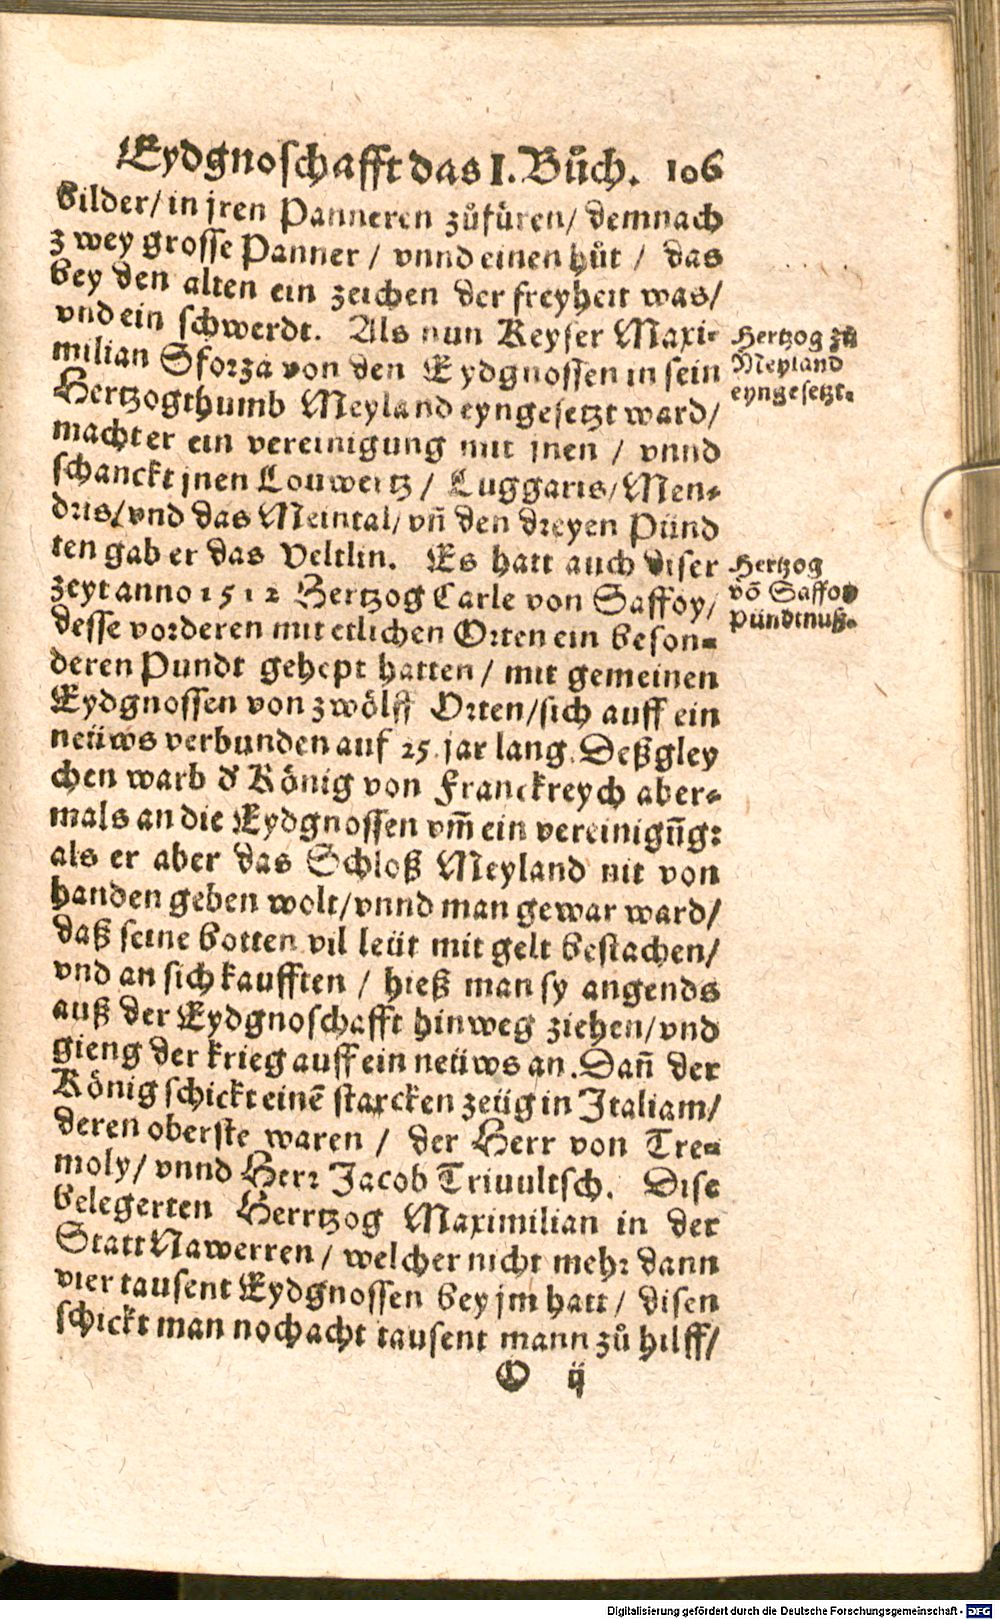 Eydgnoschafft das I. Bůch. 106
bilder/ in jren Panneren zůfüren/ demnach
zwey grosse Panner / vnnd einen hůt / das
bey den alten ein zeichen der freyheit was/
vnd ein schwerdt. Als nun Keyser Maxi-
milian Sforza von den Eydgnossen in sein
Hertzogthumb Meyland eyngesetzt ward/
macht er ein vereinigung mit jnen / vnnd
schanckt jnen Louwertz / Luggaris/ Men-
dris/ vnd das Meintal/ vñ den dreyen Pünd
ten gab er das Veltlin. Es hatt auch diser
zeyt anno 1512 Hertzog Carle von Saffoy/
desse vorderen mit etlichen Orten ein beson-
deren Pundt gehept hatten / mit gemeinen
Eydgnossen von zwölff Orten/ sich auff ein
neüws verbunden auf 25. jar lang. Deßgley
chen warb d' König von Franckreych aber-
mals an die Eydgnossen vm̃ ein vereinigũg:
als er aber das Schloß Meyland nit von
handen geben wolt/ vnnd man gewar ward/
daß seine botten vil leüt mit gelt bestachen/
vnd an sich kaufften / hieß man sy angends
auß der Eydgnoschafft hinweg ziehen/ vnd
gieng der krieg auff ein neüws an. Dañ der
König schickt einẽ starcken zeüg in Italiam/
deren oberste waren / der Herr von Tre-
moly/ vnnd Herr Jacob Triuultsch. Dise
belegerten Herrtzog Maximilian in der
Statt Nawerren / welcher nicht mehr dann
vier tausent Eydgnossen bey jm hatt / disen
schickt man noch acht tausent mann zů hilff/
O ij
Hertzog zů
Meyland
eyngesetzt.
Hertzog
võ Saffoy
pündtnuß.
Digitalisierung gefördert durch die Deutsche Forschungsgemeinschaft - DFG